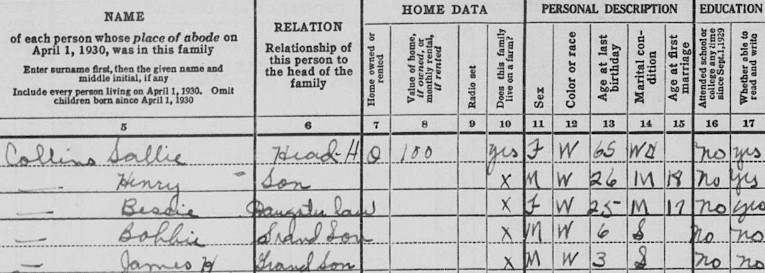 NAME
of each person whose place of abode on
April 1, 1930, was in this family
Enter surname first, then the given name and
middle initial, if any
Include every person living on April 1, 1930. Omit
children born since April 1, 1930
RELATION
Relationship of
this person to
the head of the
family
HOME DATA
Home owned or
rented
Value of home,
if owned, or
monthly rental,
if rented
Radio set
Does this family
live on a farm?
PERSONAL DESCRIPTION
Sex
Color or race
Age at last
birthday
Marital con-
dition
Age at first
marriage
EDUCATION
Attended school or
college any time
since Sept. 1, 1929
Whether able to
read and write
5 6 7 8 9 10 11 12 13 14 15 16 17
Collins Sallie Head-H O 100 yes F W 65 Wd No yes
— Henry Son X M W 26 M 18 No yes
— Bessie Daughter law X F W 25 M 17 No yes
— Bobbie Grand Son X M W 6 S No No
— James H Grand Son X M W 3 S No No